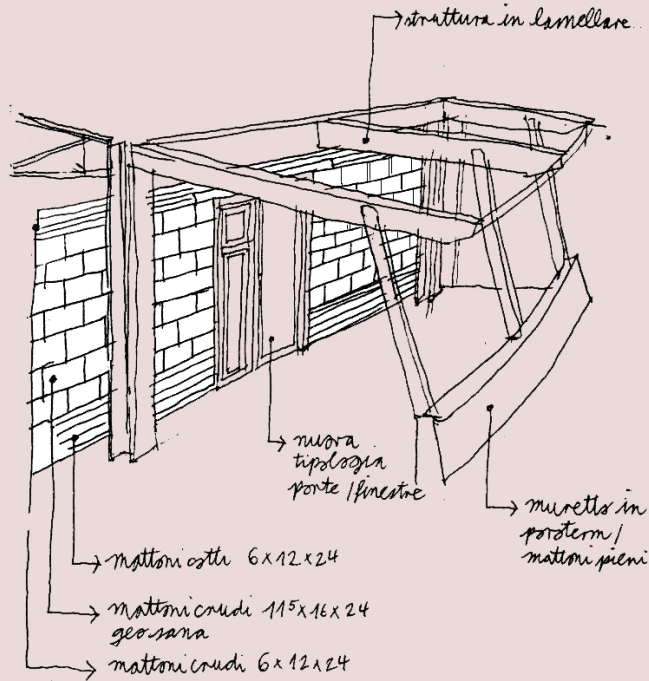 struttura in lamellare
nuova
tipologia
porte/finestre
muretto in
poroterm/
mattoni pieni
mattoni cotti 6x12x24
mattoni crudi 11⁵x16x24
geosana
mattoni crudi 6x12x24